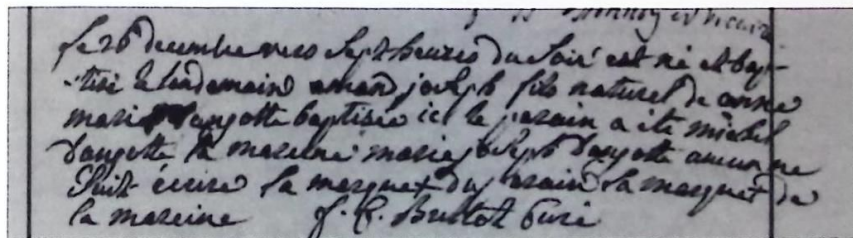 le 26 decembre vers Sept heures du Soir est né et bap-
-tisé le lendemain amand joseph fils naturel de anne
marie dangotte baptisée ici le parain a été michel
dangotte la mareine marie joseph dangotte aucun ne
Scait écrire la marque + du parain la marque + de
la mareine